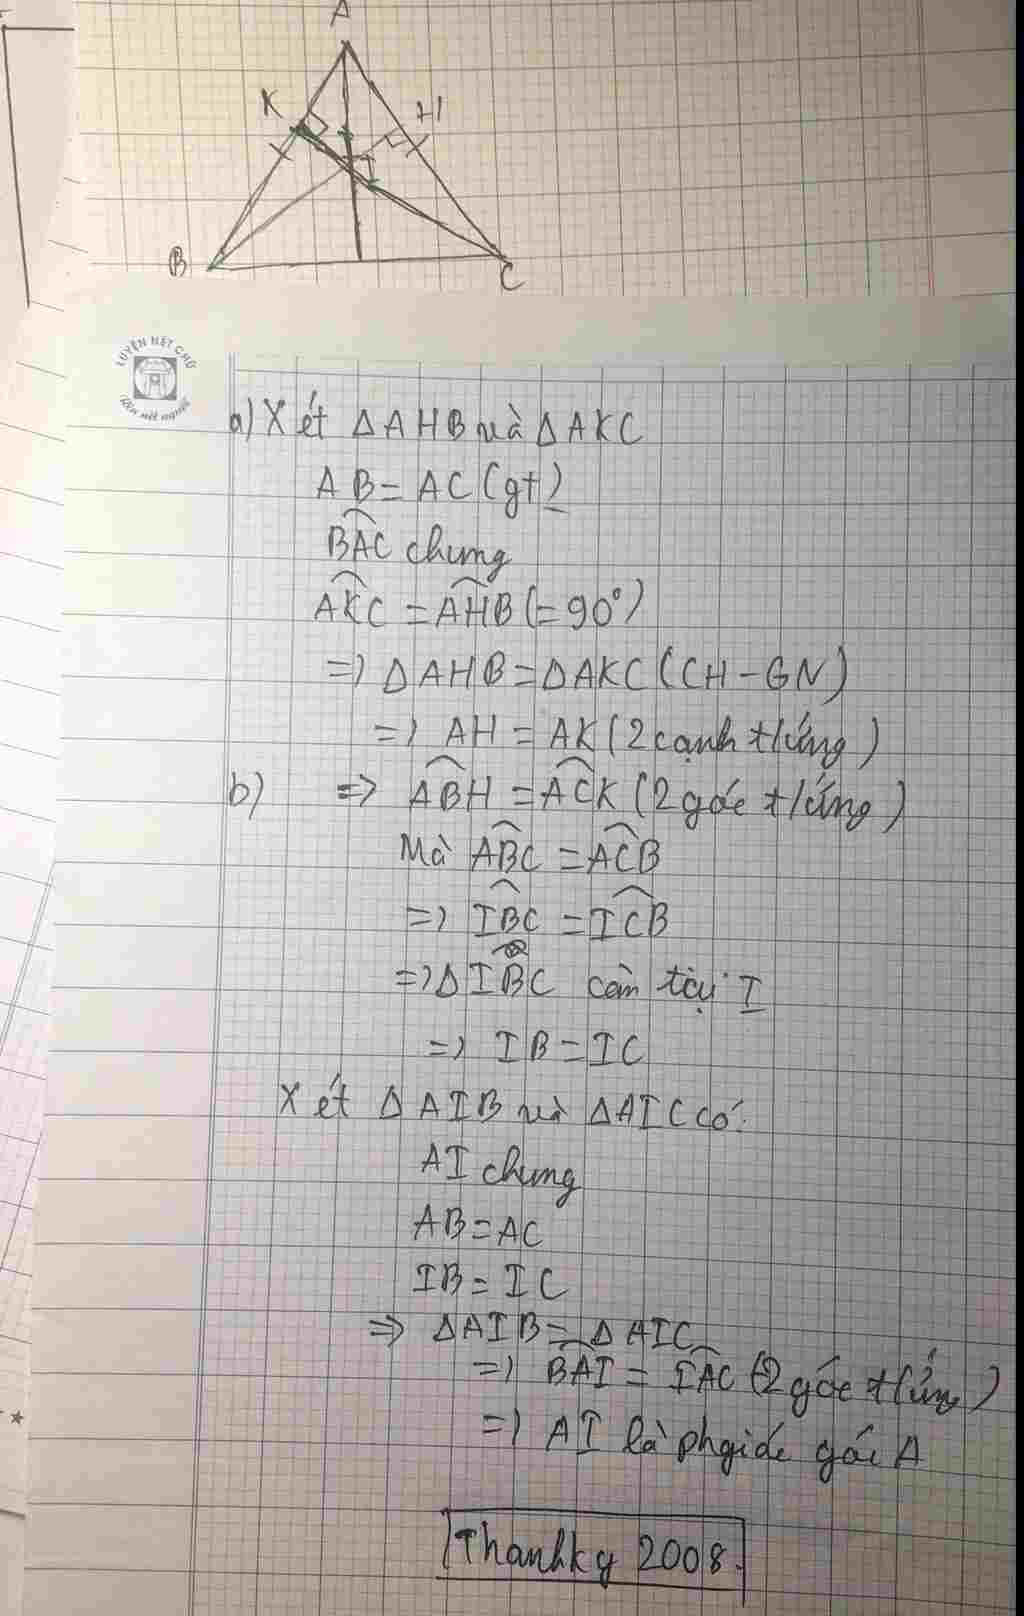 A
K
H
I
B
C
LUYỆN NÉT CHỮ
Rèn nết người
a) Xét ΔAHB và ΔAKC
AB = AC (gt)
BAC chung
AKC = AHB (= 90°)
=> ΔAHB = ΔAKC (CH - GN)
=> AH = AK (2 cạnh t/ứng)
b) => ABH = ACK (2 góc t/ứng)
Mà ABC = ACB
=> IBC = ICB
=> ΔIBC cân tại I
=> IB = IC
Xét ΔAIB và ΔAIC có:
AI chung
AB = AC
IB = IC
=> ΔAIB = ΔAIC
=> BAI = IAC (2 góc t/ứng)
=> AI là phgiác góc A
Thanhky 2008.